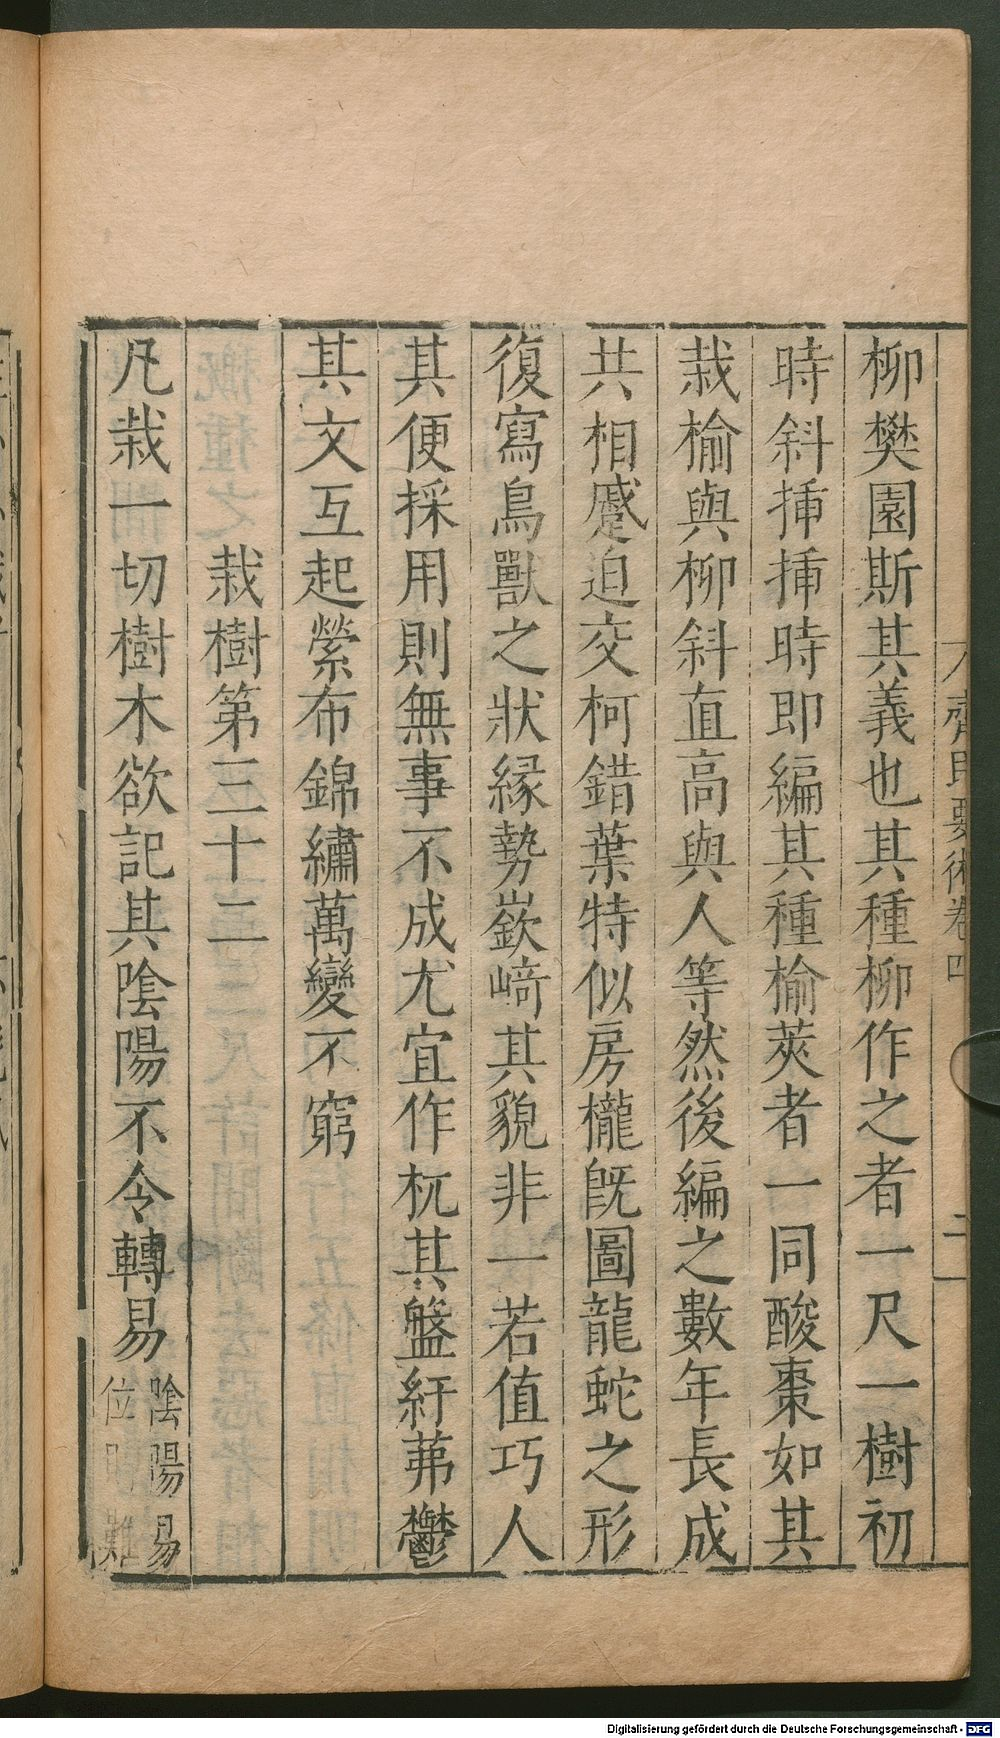 齊民要術卷四 二
柳樊園斯其義也其種柳作之者一尺一樹初
時斜揷揷時即編其種榆莢者一同酸棗如其
栽榆與柳斜直高與人等然後編之數年長成
共相蹙迫交柯錯葉特似房櫳旣圖龍蛇之形
復寫鳥獸之狀緣勢嶔﨑其貌非一若值巧人
其便採用則無事不成尤宜作杌其盤紆茀鬱
其文互起縈布錦繡萬變不窮
栽樹第三十二
凡栽一切樹木欲記其陰陽不令轉易陰陽易
位則難
Digitalisierung gefördert durch die Deutsche Forschungsgemeinschaft - DFG